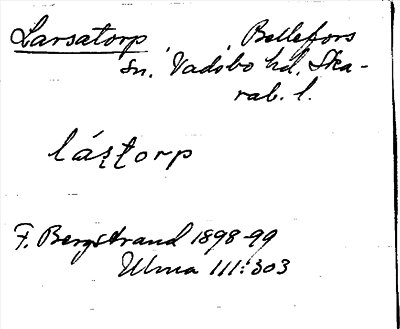 Larsatorp Bellefors
sn. Vadsbo hd. Ska-
rab. l.
lás̨t̨orp
F. Bergstrand 1898-99
Ulma 111:303